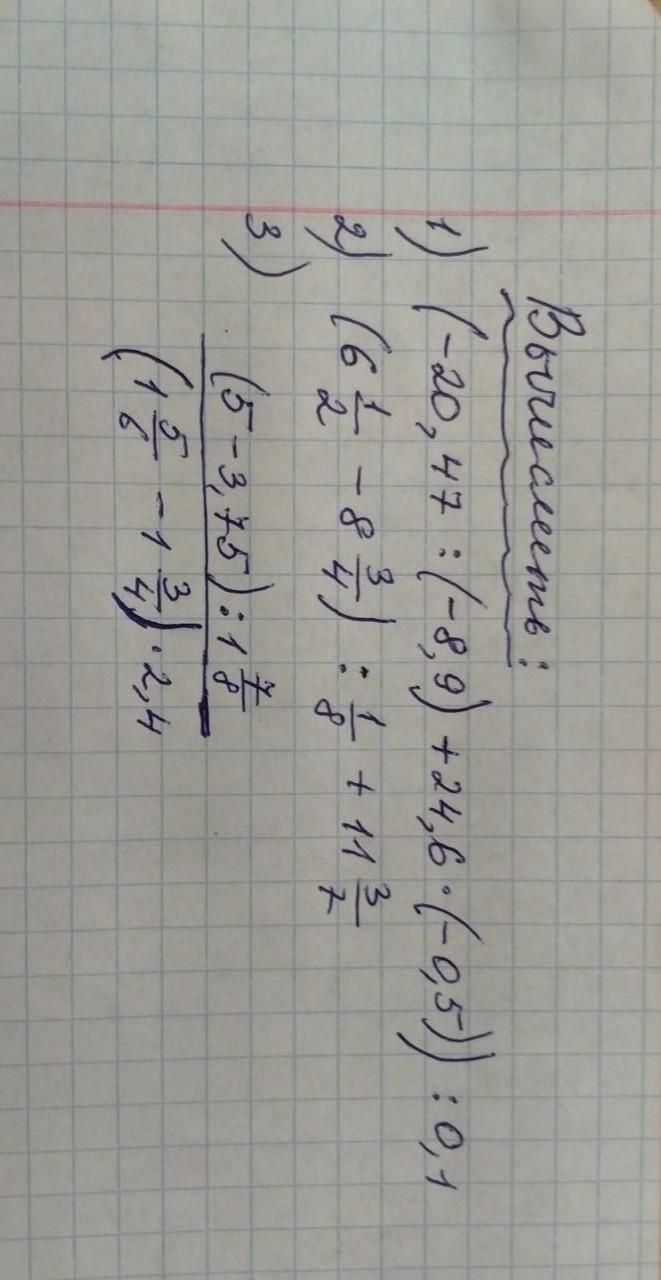 Вычислить:
1) (-20,47 : (-8,9) + 24,6 · (-0,5)) : 0,1
2) (6 1/2 - 8 3/4) : 1/8 + 11 3/7
3) (5 - 3,75) : 1 7/8
(1 5/6 - 1 3/4) · 2,4